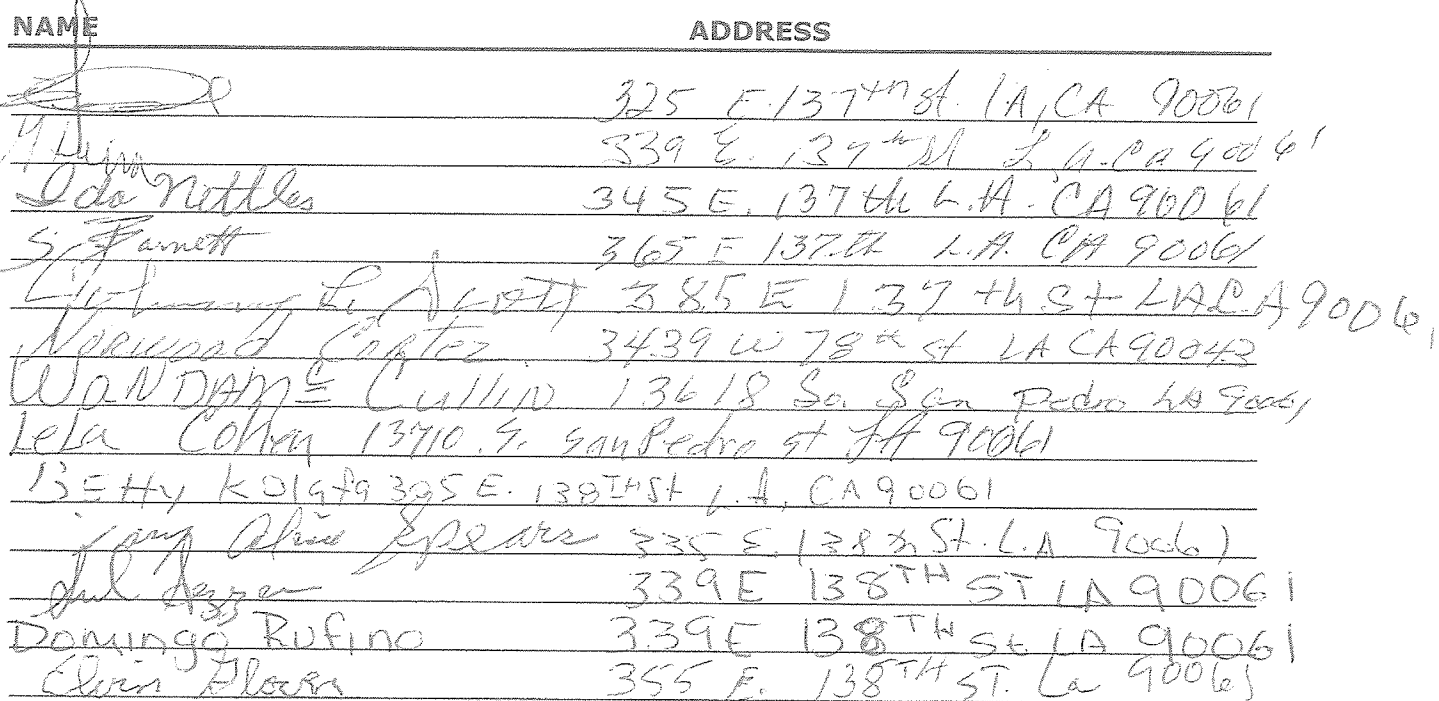 NAME ADDRESS
325 E. 137th st. LA, CA 90061
339 E. 137th St L.A. Ca 90061
Ida Nettles 345 E. 137th L.A. CA 90061
S. 365 E 137th L.A. CA 90061
L. Scott 385 E 137th St LA CA 90061
Norwood 3439 W 78th st LA CA 90043
Cullin 13618 So. San Pedro LA 90061
Lela Cohen 13710 S. San Pedro st LA 90061
BEtty E. 138TH St L.A, CA 90061
Spears 335 E. 138th St. L.A 90061
339 E 138TH ST LA 90061
Domingo Rufino 339 E 138TH St LA 90061
355 E. 138TH ST. La 90061